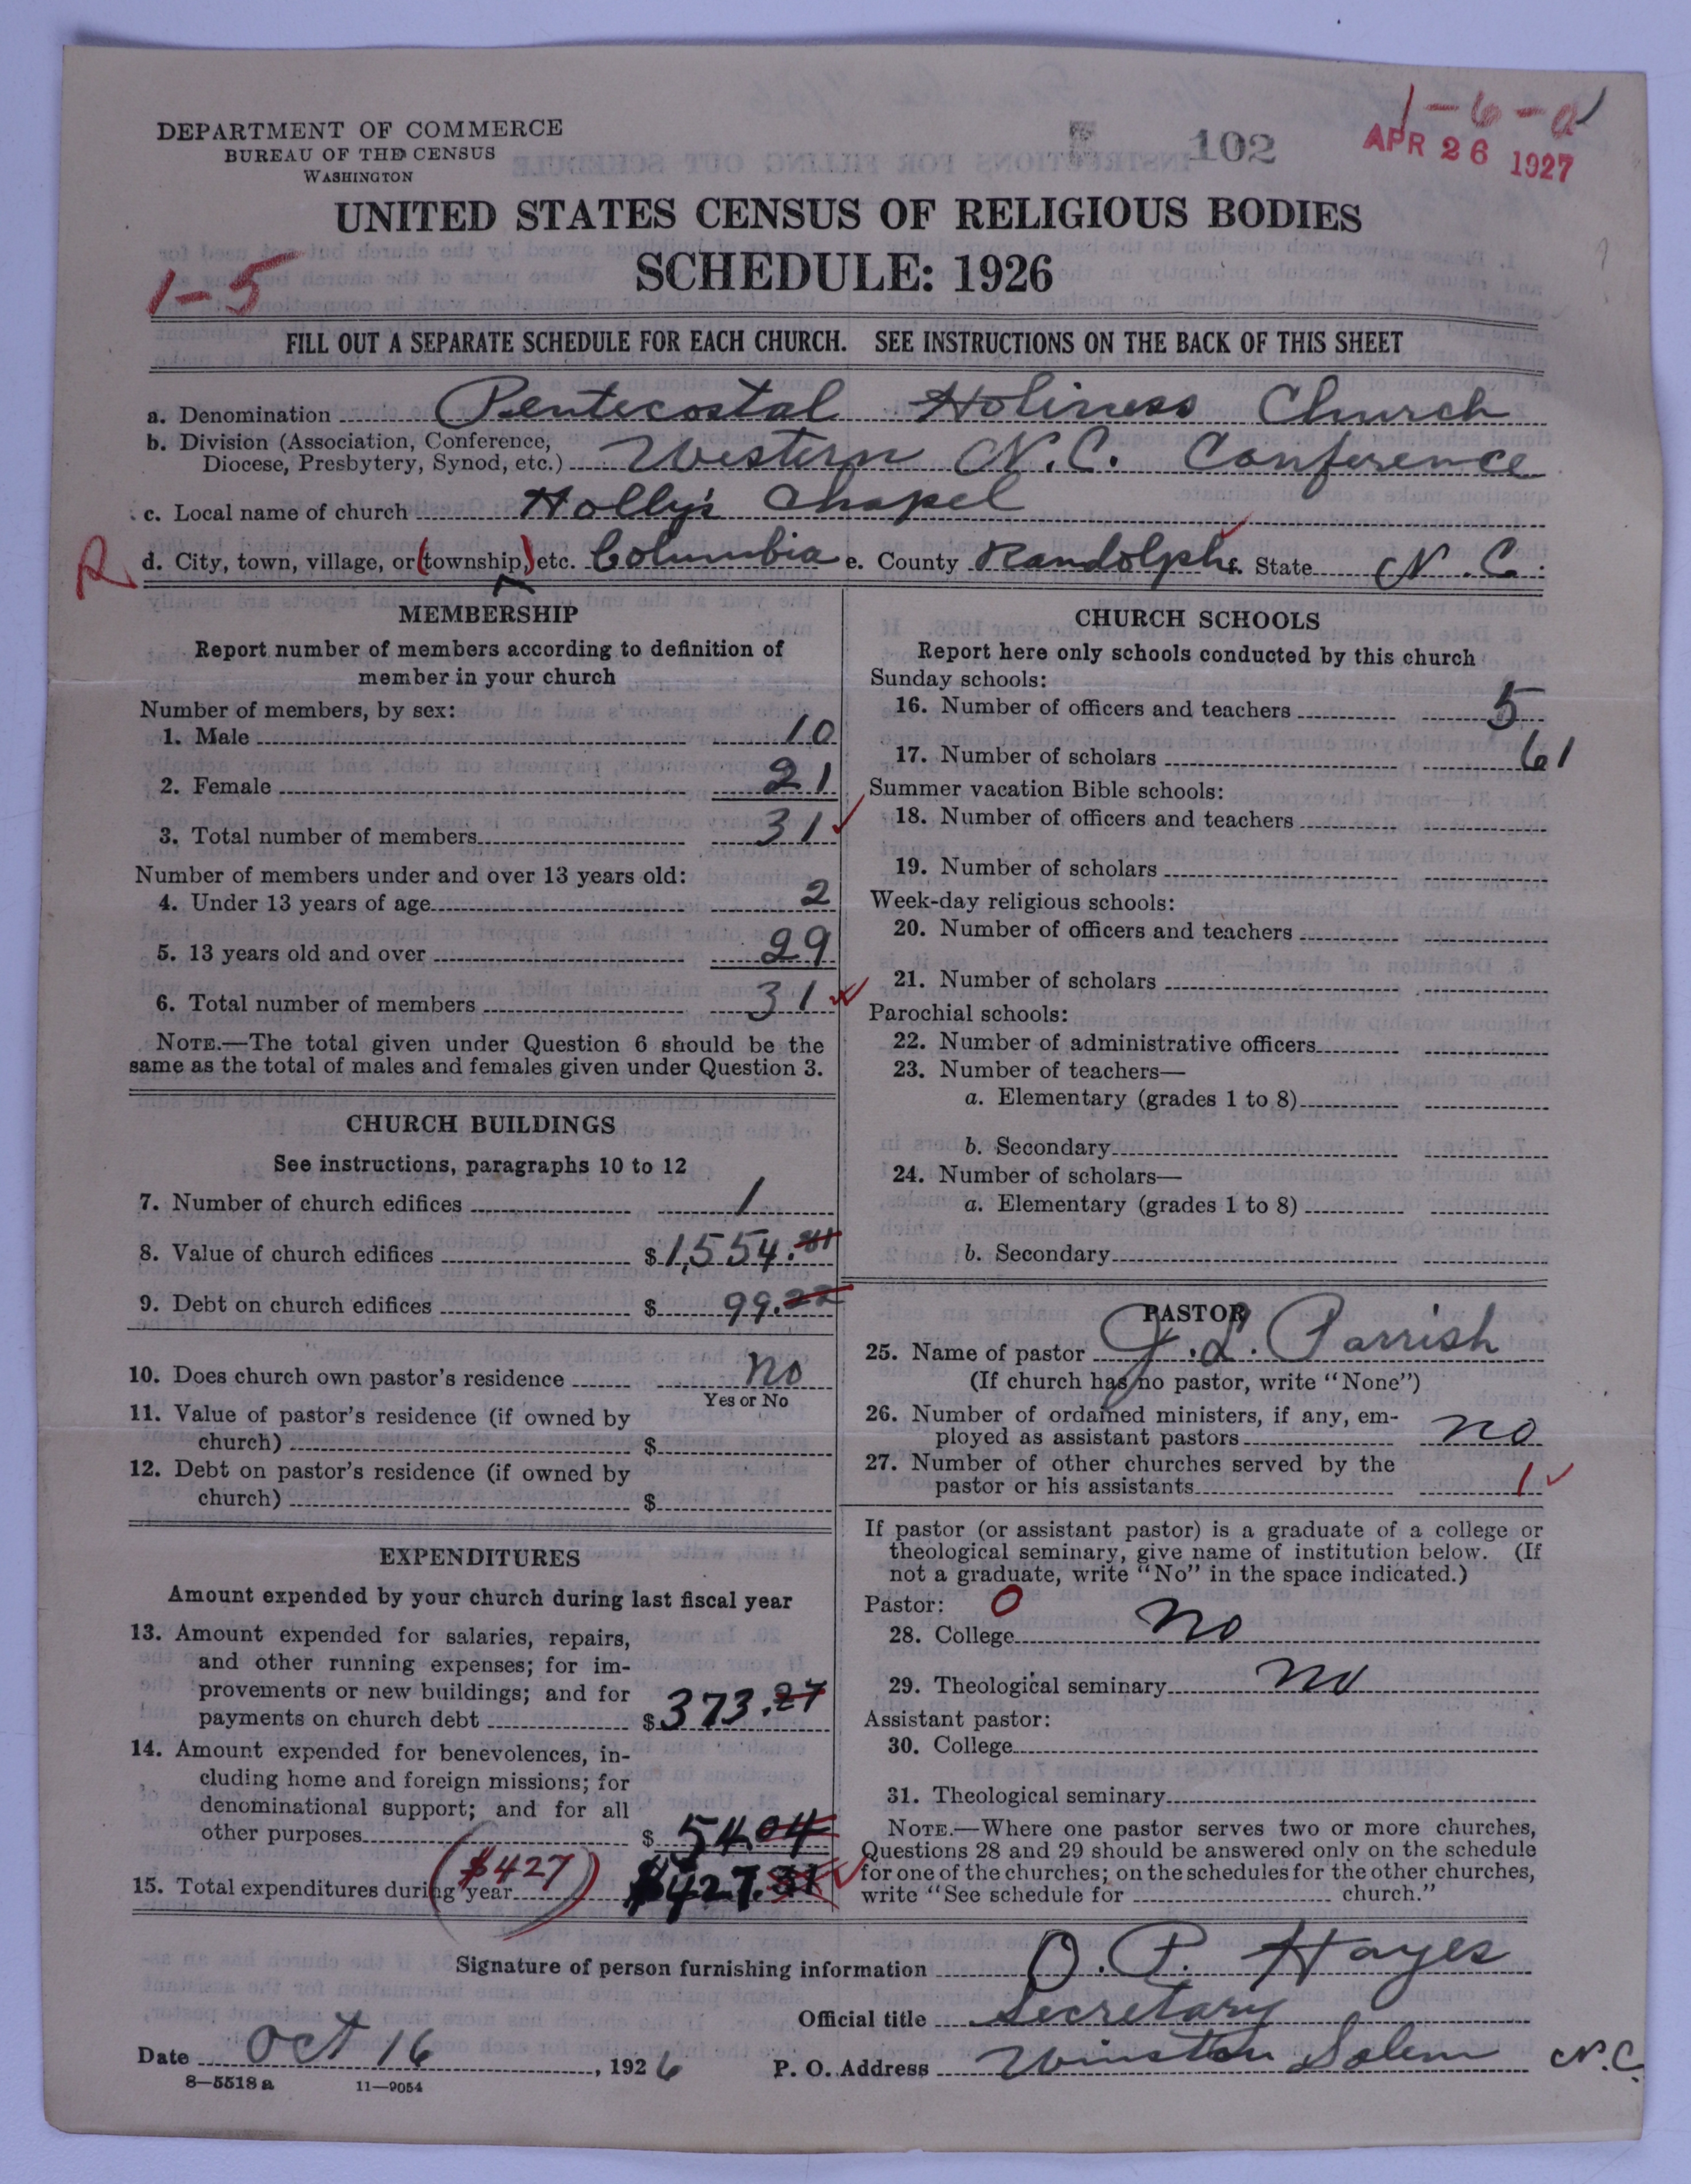 1-6-a
DEPARTMENT OF COMMERCE
BUREAU OF THE CENSUS
WASHINGTON
102
APR 26 1927
UNITED STATES CENSUS OF RELIGIOUS BODIES
SCHEDULE: 1926
1-5
FILL OUT A SEPARATE SCHEDULE FOR EACH CHURCH. SEE INSTRUCTIONS ON THE BACK OF THIS SHEET
a. Denomination Pentecostal Holiness Church
b. Division (Association, Conference,
Diocese, Presbytery, Synod, etc.) Western N.C. Conference
c. Local name of church Holly's Chapel
R d. City, town, village, or (township,) etc. Columbia e. County Randolph f. State N.C.
MEMBERSHIP
Report number of members according to definition of
member in your church
Number of members, by sex:
1. Male 10
2. Female 21
3. Total number of members 31
Number of members under and over 13 years old:
4. Under 13 years of age 2
5. 13 years old and over 29
6. Total number of members 31
NOTE.—The total given under Question 6 should be the
same as the total of males and females given under Question 3.
CHURCH BUILDINGS
See instructions, paragraphs 10 to 12
7. Number of church edifices 1
8. Value of church edifices $1,554.81
9. Debt on church edifices $ 99.22
10. Does church own pastor's residence no
Yes or No
11. Value of pastor's residence (if owned by
church) $
12. Debt on pastor's residence (if owned by
church) $
EXPENDITURES
Amount expended by your church during last fiscal year
13. Amount expended for salaries, repairs,
and other running expenses; for im-
provements or new buildings; and for
payments on church debt $373.27
14. Amount expended for benevolences, in-
cluding home and foreign missions; for
denominational support; and for all
other purposes $ 54.04
15. Total expenditures during year ($427) $427.31
CHURCH SCHOOLS
Report here only schools conducted by this church
Sunday schools:
16. Number of officers and teachers 5
17. Number of scholars 61
Summer vacation Bible schools:
18. Number of officers and teachers
19. Number of scholars
Week-day religious schools:
20. Number of officers and teachers
21. Number of scholars
Parochial schools:
22. Number of administrative officers
23. Number of teachers—
a. Elementary (grades 1 to 8)
b. Secondary
24. Number of scholars—
a. Elementary (grades 1 to 8)
b. Secondary
PASTOR
25. Name of pastor J. L. Parrish
(If church has no pastor, write "None")
26. Number of ordained ministers, if any, em-
ployed as assistant pastors no
27. Number of other churches served by the
pastor or his assistants 1
If pastor (or assistant pastor) is a graduate of a college or
theological seminary, give name of institution below. (If
not a graduate, write "No" in the space indicated.)
Pastor: 0
28. College no
29. Theological seminary no
Assistant pastor:
30. College
31. Theological seminary
NOTE.—Where one pastor serves two or more churches,
Questions 28 and 29 should be answered only on the schedule
for one of the churches; on the schedules for the other churches,
write "See schedule for church."
Signature of person furnishing information O. P. Hayes
Official title Secretary
Date Oct 16, 1926 P. O. Address Winston Salem N.C.
8—5518 a 11—9054